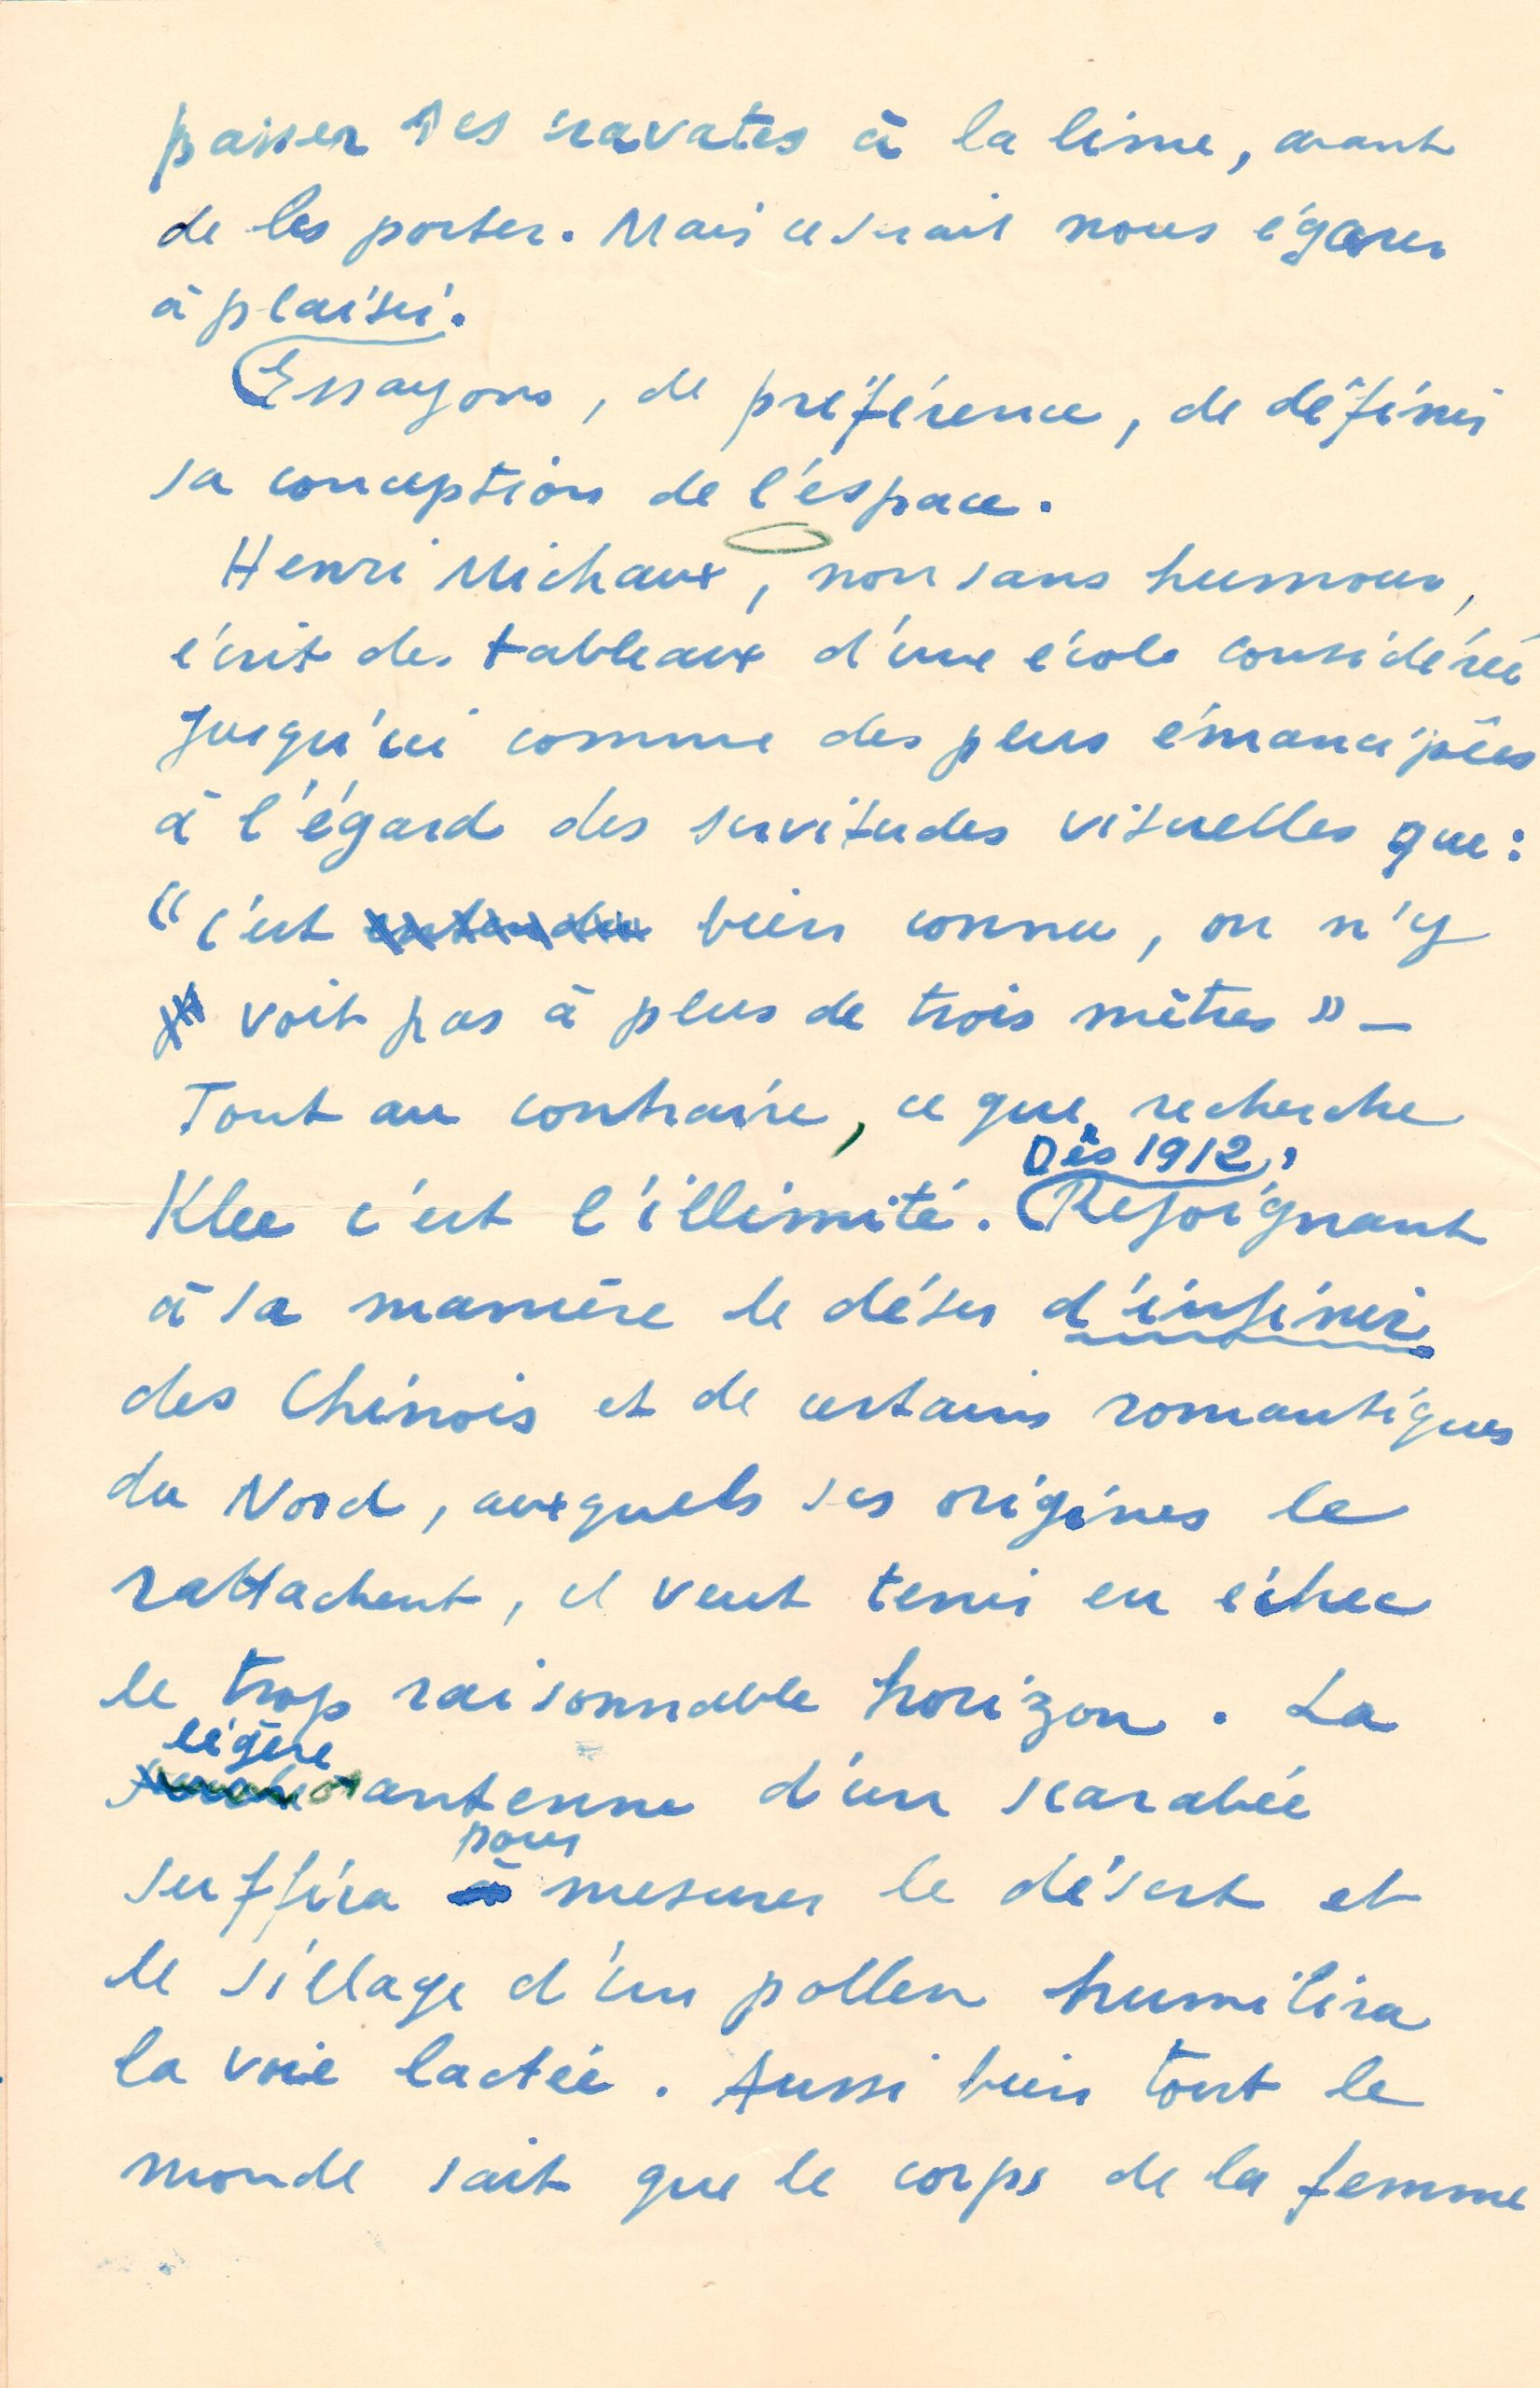 passer ses cravates à la lime, avant
de les porter. Mais ce serait nous égarer
à plaisir.
Essayons, de préférence, de définir
sa conception de l'espace.
Henri Michaux, non sans humour,
écrit des tableaux d'une école considérée
jusqu'ici comme des plus émancipées
à l'égard des servitudes visuelles que :
"c'est entendu bien connu, on n'y
voit pas à plus de trois mètres" —
Tout au contraire, ce que recherche
Dès 1912,
Klee c'est l'illimité. Rejoignant
à sa manière le désir d'infinir
des Chinois et de certains romantiques
du Nord, auxquels ses origines le
rattachent, il veut tenir en échec
le trop raisonnable horizon. La
légère
antenne d'un scarabée
pour
suffira à mesurer le désert et
le sillage d'un pollen humilira
la voie lactée. Aussi bien tout le
monde sait que le corps de la femme